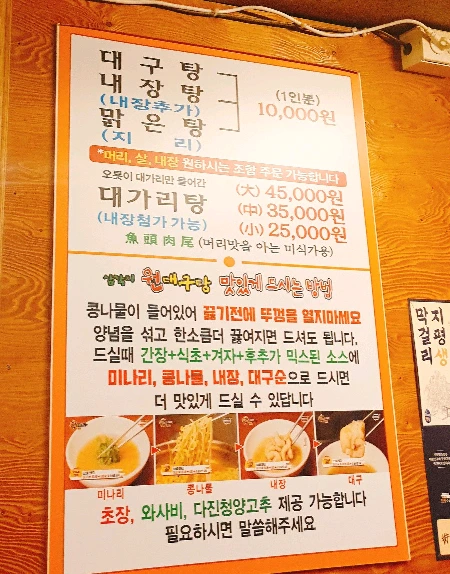 대구탕
내장탕
(내장추가)
맑은탕
(지리)
(1인분)
10,000원
*머리, 살, 내장 원하시는 조합 주문 가능합니다
오롯이 대가리만 들어간
대가리탕
(내장첨가 가능)
(大) 45,000원
(中) 35,000원
(小) 25,000원
魚頭肉尾 (머리맛을 아는 미식가용)
삼각지 원대구탕 맛있게 드시는 방법
콩나물이 들어있어 끓기전에 뚜껑을 열지마세요
양념을 섞고 한소큼더 끓여지면 드셔도 됩니다.
드실때 간장+식초+겨자+후추가 믹스된 소스에
미나리, 콩나물, 내장, 대구순으로 드시면
더 맛있게 드실 수 있답니다
미나리
콩나물
내장
대구
초장, 와사비, 다진청양고추 제공 가능합니다
필요하시면 말씀해주세요
지평생
막걸리